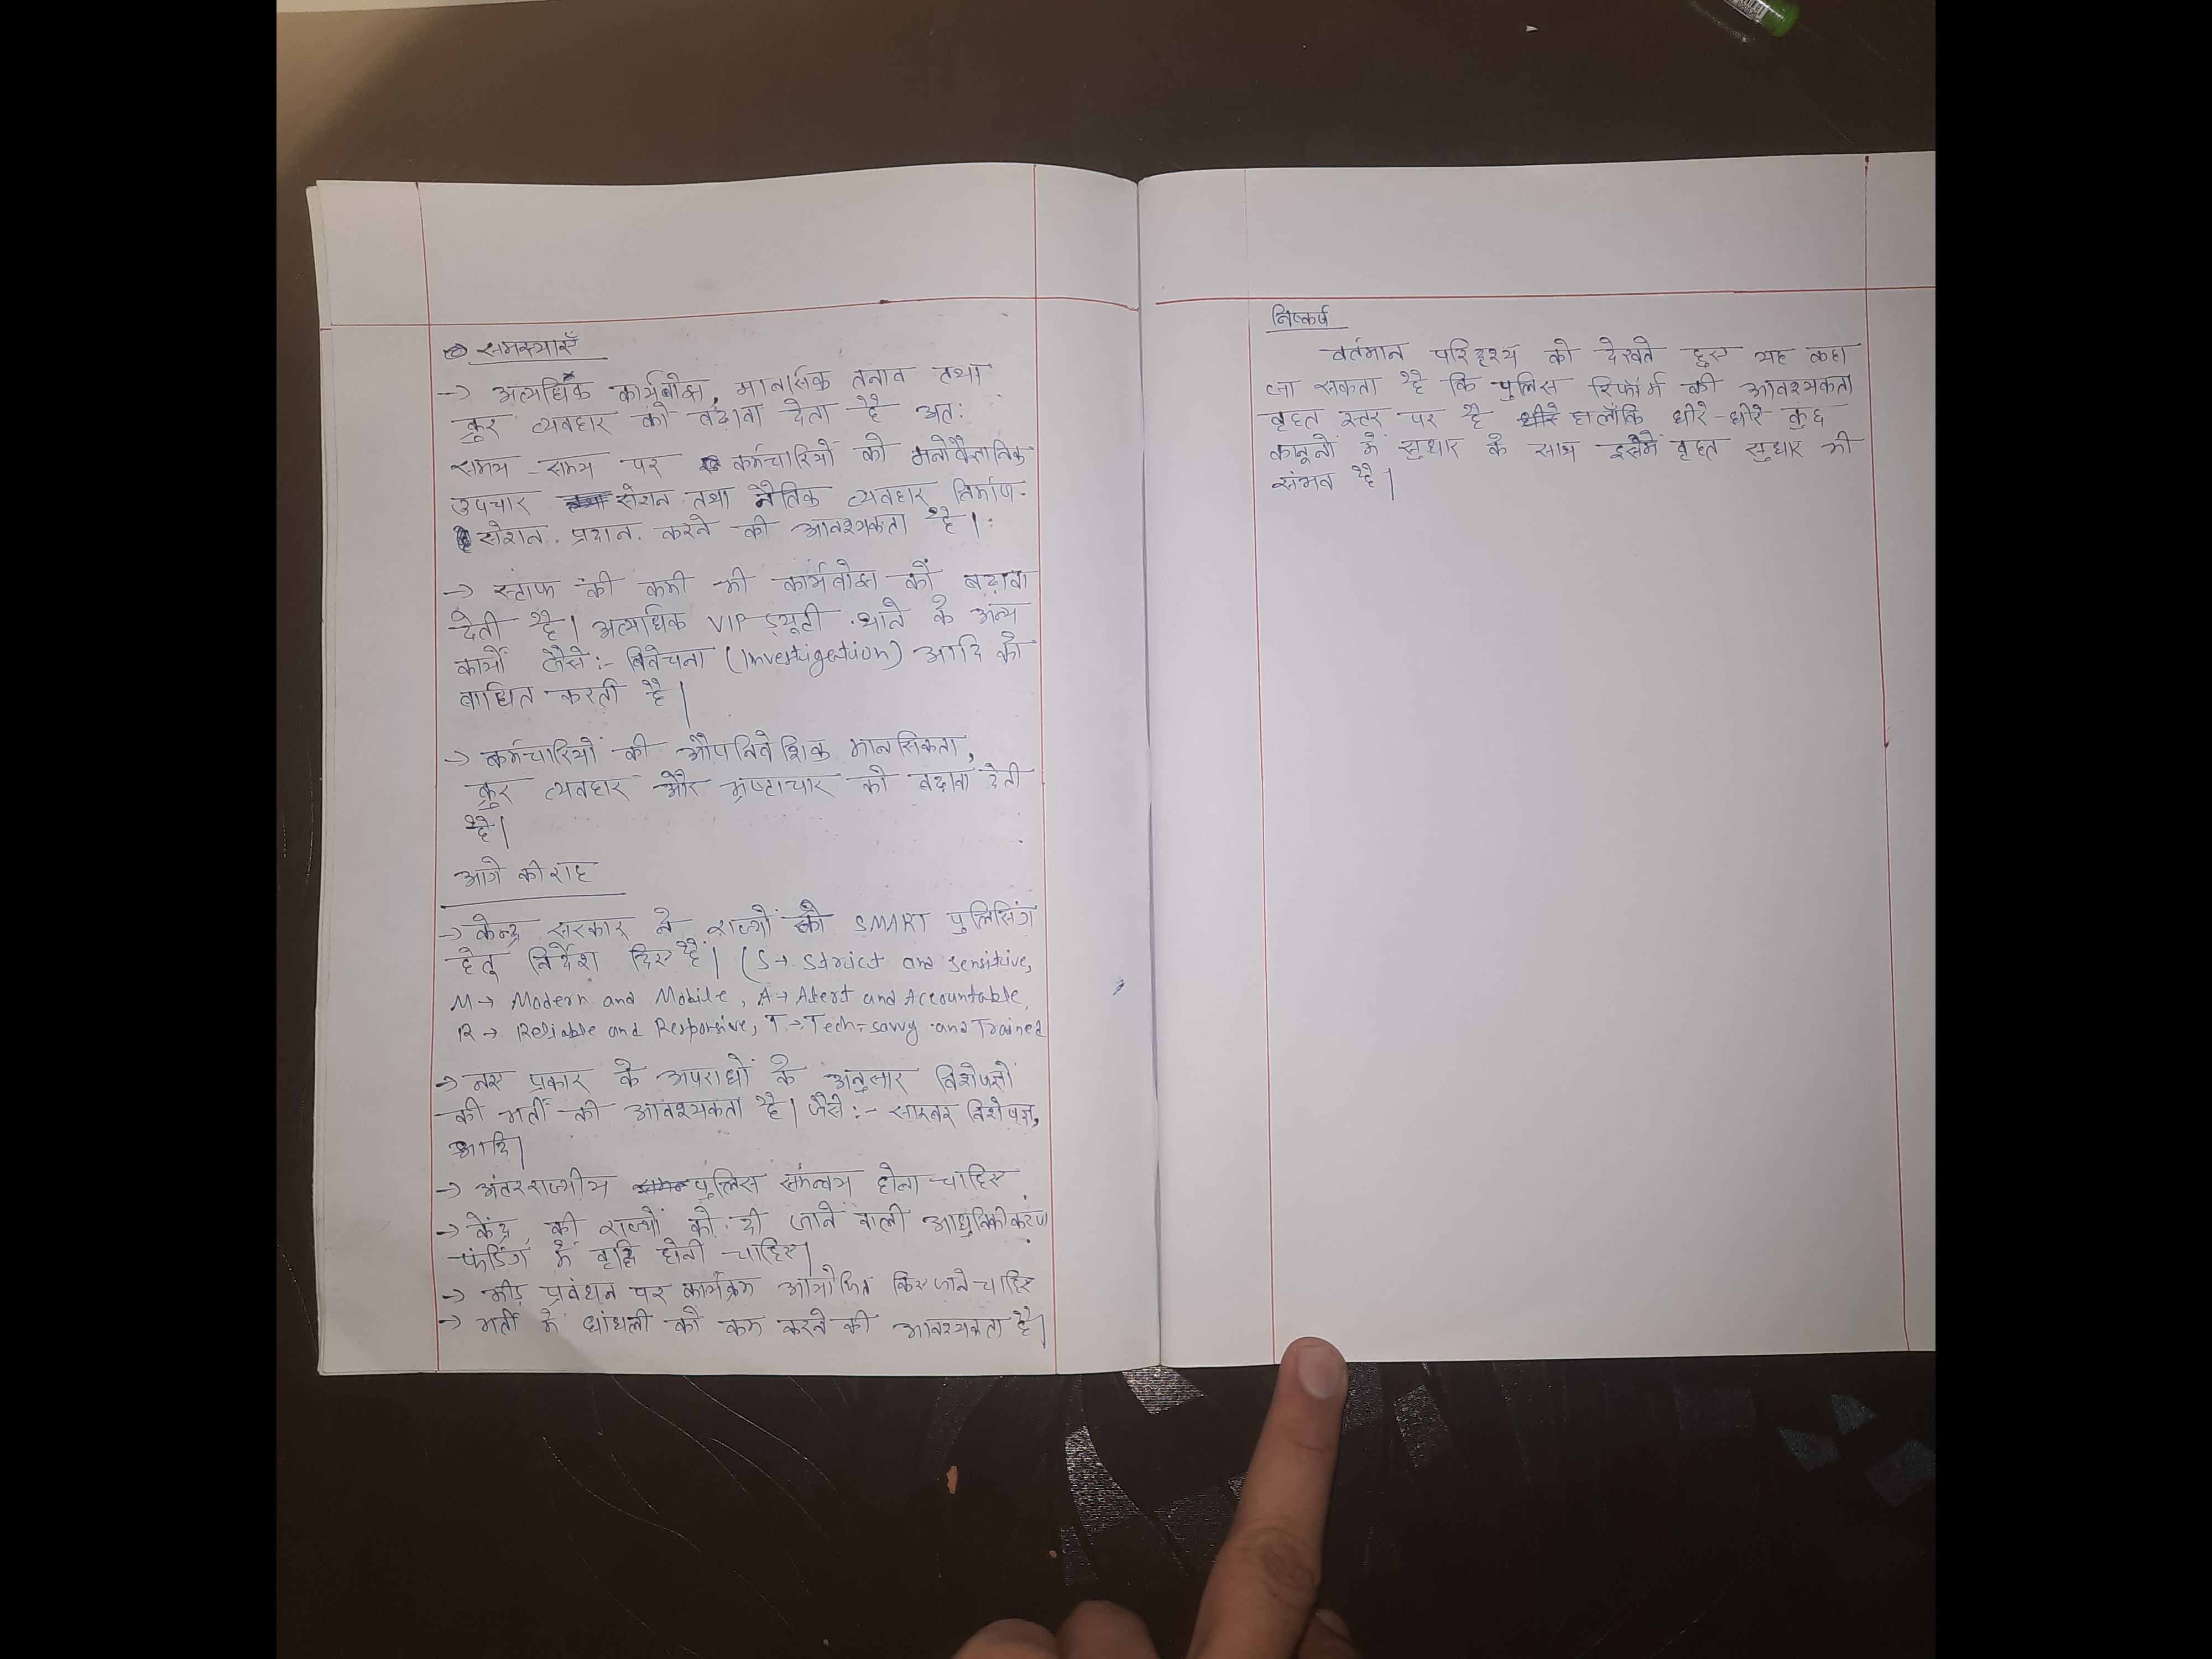 समस्याएँ
→ अत्यधिक कार्यबोझ, मानसिक तनाव तथा
क्रुर व्यवहार को बढ़ावा देता है अतः
समय-समय पर कर्मचारियों को मनोवैज्ञानिक
उपचार सेशन तथा नैतिक व्यवहार निर्माण
सेशन प्रदान करने की आवश्यकता है।
→ स्टाफ की कमी भी कार्यबोझ को बढ़ावा
देती है। अत्यधिक VIP ड्यूटी थाने के अन्य
कार्यों जैसे:- विवेचना (Investigation) आदि को
बाधित करती है।
→ कर्मचारियों की औपनिवेशिक मानसिकता,
क्रुर व्यवहार और भ्रष्टाचार को बढ़ावा देती
है।
आगे की राह
→ केन्द्र सरकार ने राज्यों को SMART पुलिसिंग
हेतु निर्देश दिए हैं। (S→ Strict and Sensitive,
M→ Modern and Mobile, A→ Alert and Accountable,
R→ Reliable and Responsive, T→ Tech-savvy and Trained
→ नए प्रकार के अपराधों के अनुसार विशेषज्ञों
की भर्ती की आवश्यकता है। जैसे:- साइबर विशेषज्ञ,
आदि।
→ अंतरराज्यीय पुलिस समन्वय होना चाहिए
→ केंद्र की राज्यों को दी जाने वाली आधुनिकीकरण
फंडिंग में वृद्धि होनी चाहिए।
→ भीड़ प्रबंधन पर कार्यक्रम आयोजित किए जाने चाहिए
→ भर्ती में धांधली को कम करने की आवश्यकता है।
निष्कर्ष
वर्तमान परिदृश्य को देखते हुए यह कहा
जा सकता है कि पुलिस रिफॉर्म की आवश्यकता
वृहत स्तर पर है हालाँकि धीरे-धीरे कुछ
कानूनों में सुधार के साथ इसमें वृहत सुधार भी
संभव है।